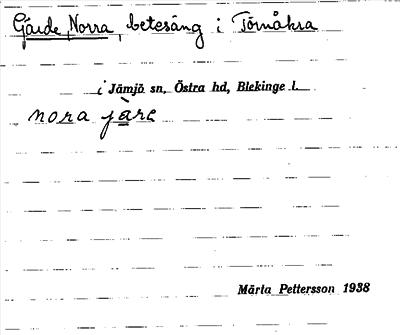 Gärde, Norra, betesäng i Törnåkra
i Jämjö sn, Östra hd, Blekinge l.
nora jàre
Märta Pettersson 1938